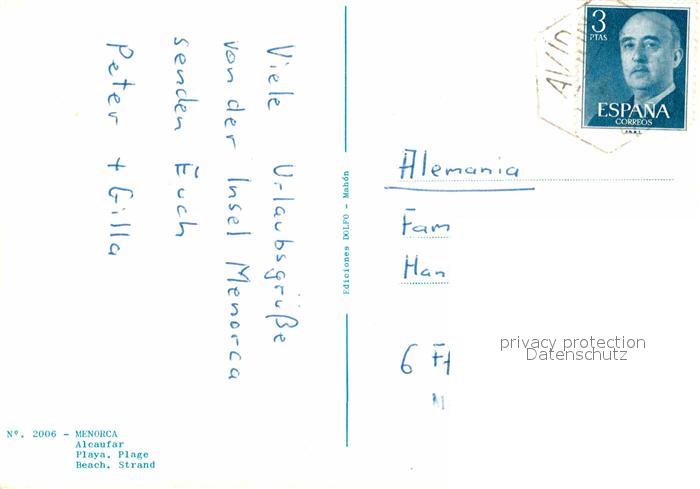 Viele Urlaubsgrüße
von der Insel Menorca
senden Euch
Peter + Gilla
Nº. 2006 - MENORCA
Alcaufar
Playa. Plage
Beach. Strand
Ediciones DOLFO - Mahón
3
PTAS
ESPAÑA
CORREOS
Alemania
Fam
Han
6
privacy protection
Datenschutz